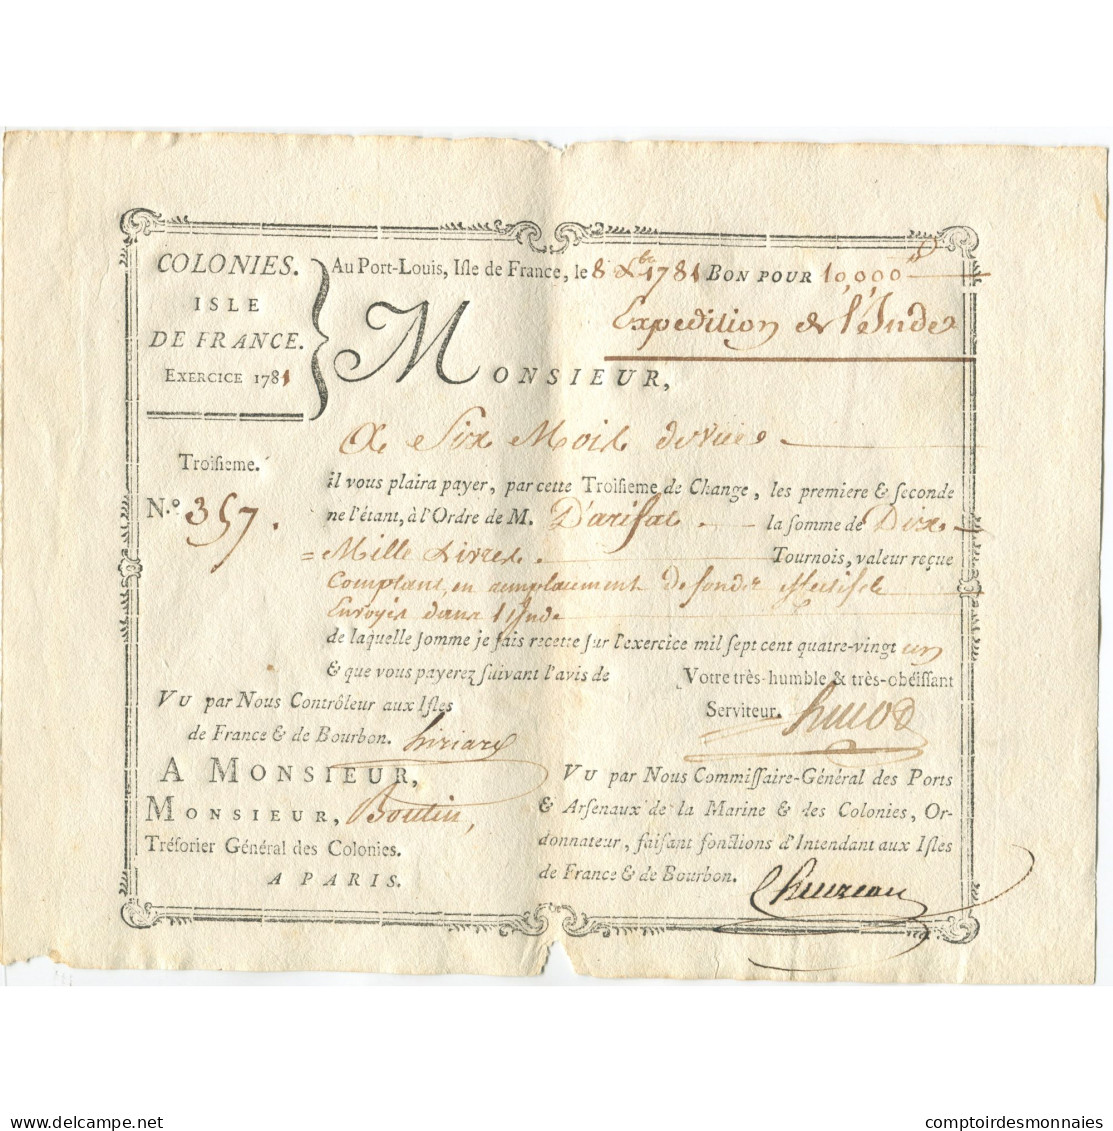 COLONIES.
ISLE
DE FRANCE.
EXERCICE 1781
Au Port-Louis, Isle de France, le 8 Xbre 1781 BON POUR 10,000ᵗᵗ
Expedition de l'Inde
MONSIEUR,
A Six Mois de vue
Troisieme.
N.º 357.
il vous plaira payer, par cette Troisieme de Change, les premiere & seconde
ne l'étant, à l'Ordre de M. D'arifat la somme de Dix
= Mille Livres Tournois, valeur reçue
Comptant, en remplacement de fonds effectifs
Envoyés dans l'Inde
de laquelle somme je fais recette sur l'exercice mil sept cent quatre-vingt un
& que vous payerez suivant l'avis de
Votre très-humble & très-obéissant
Serviteur.
VU par Nous Contrôleur aux Isles
de France & de Bourbon.
A MONSIEUR,
MONSIEUR, Boutin,
Trésorier Général des Colonies.
A PARIS.
VU par Nous Commissaire-Général des Ports
& Arsenaux de la Marine & des Colonies, Or-
donnateur, faisant fonctions d'Intendant aux Isles
de France & de Bourbon.
Chevreau
comptoirdesmonnaies